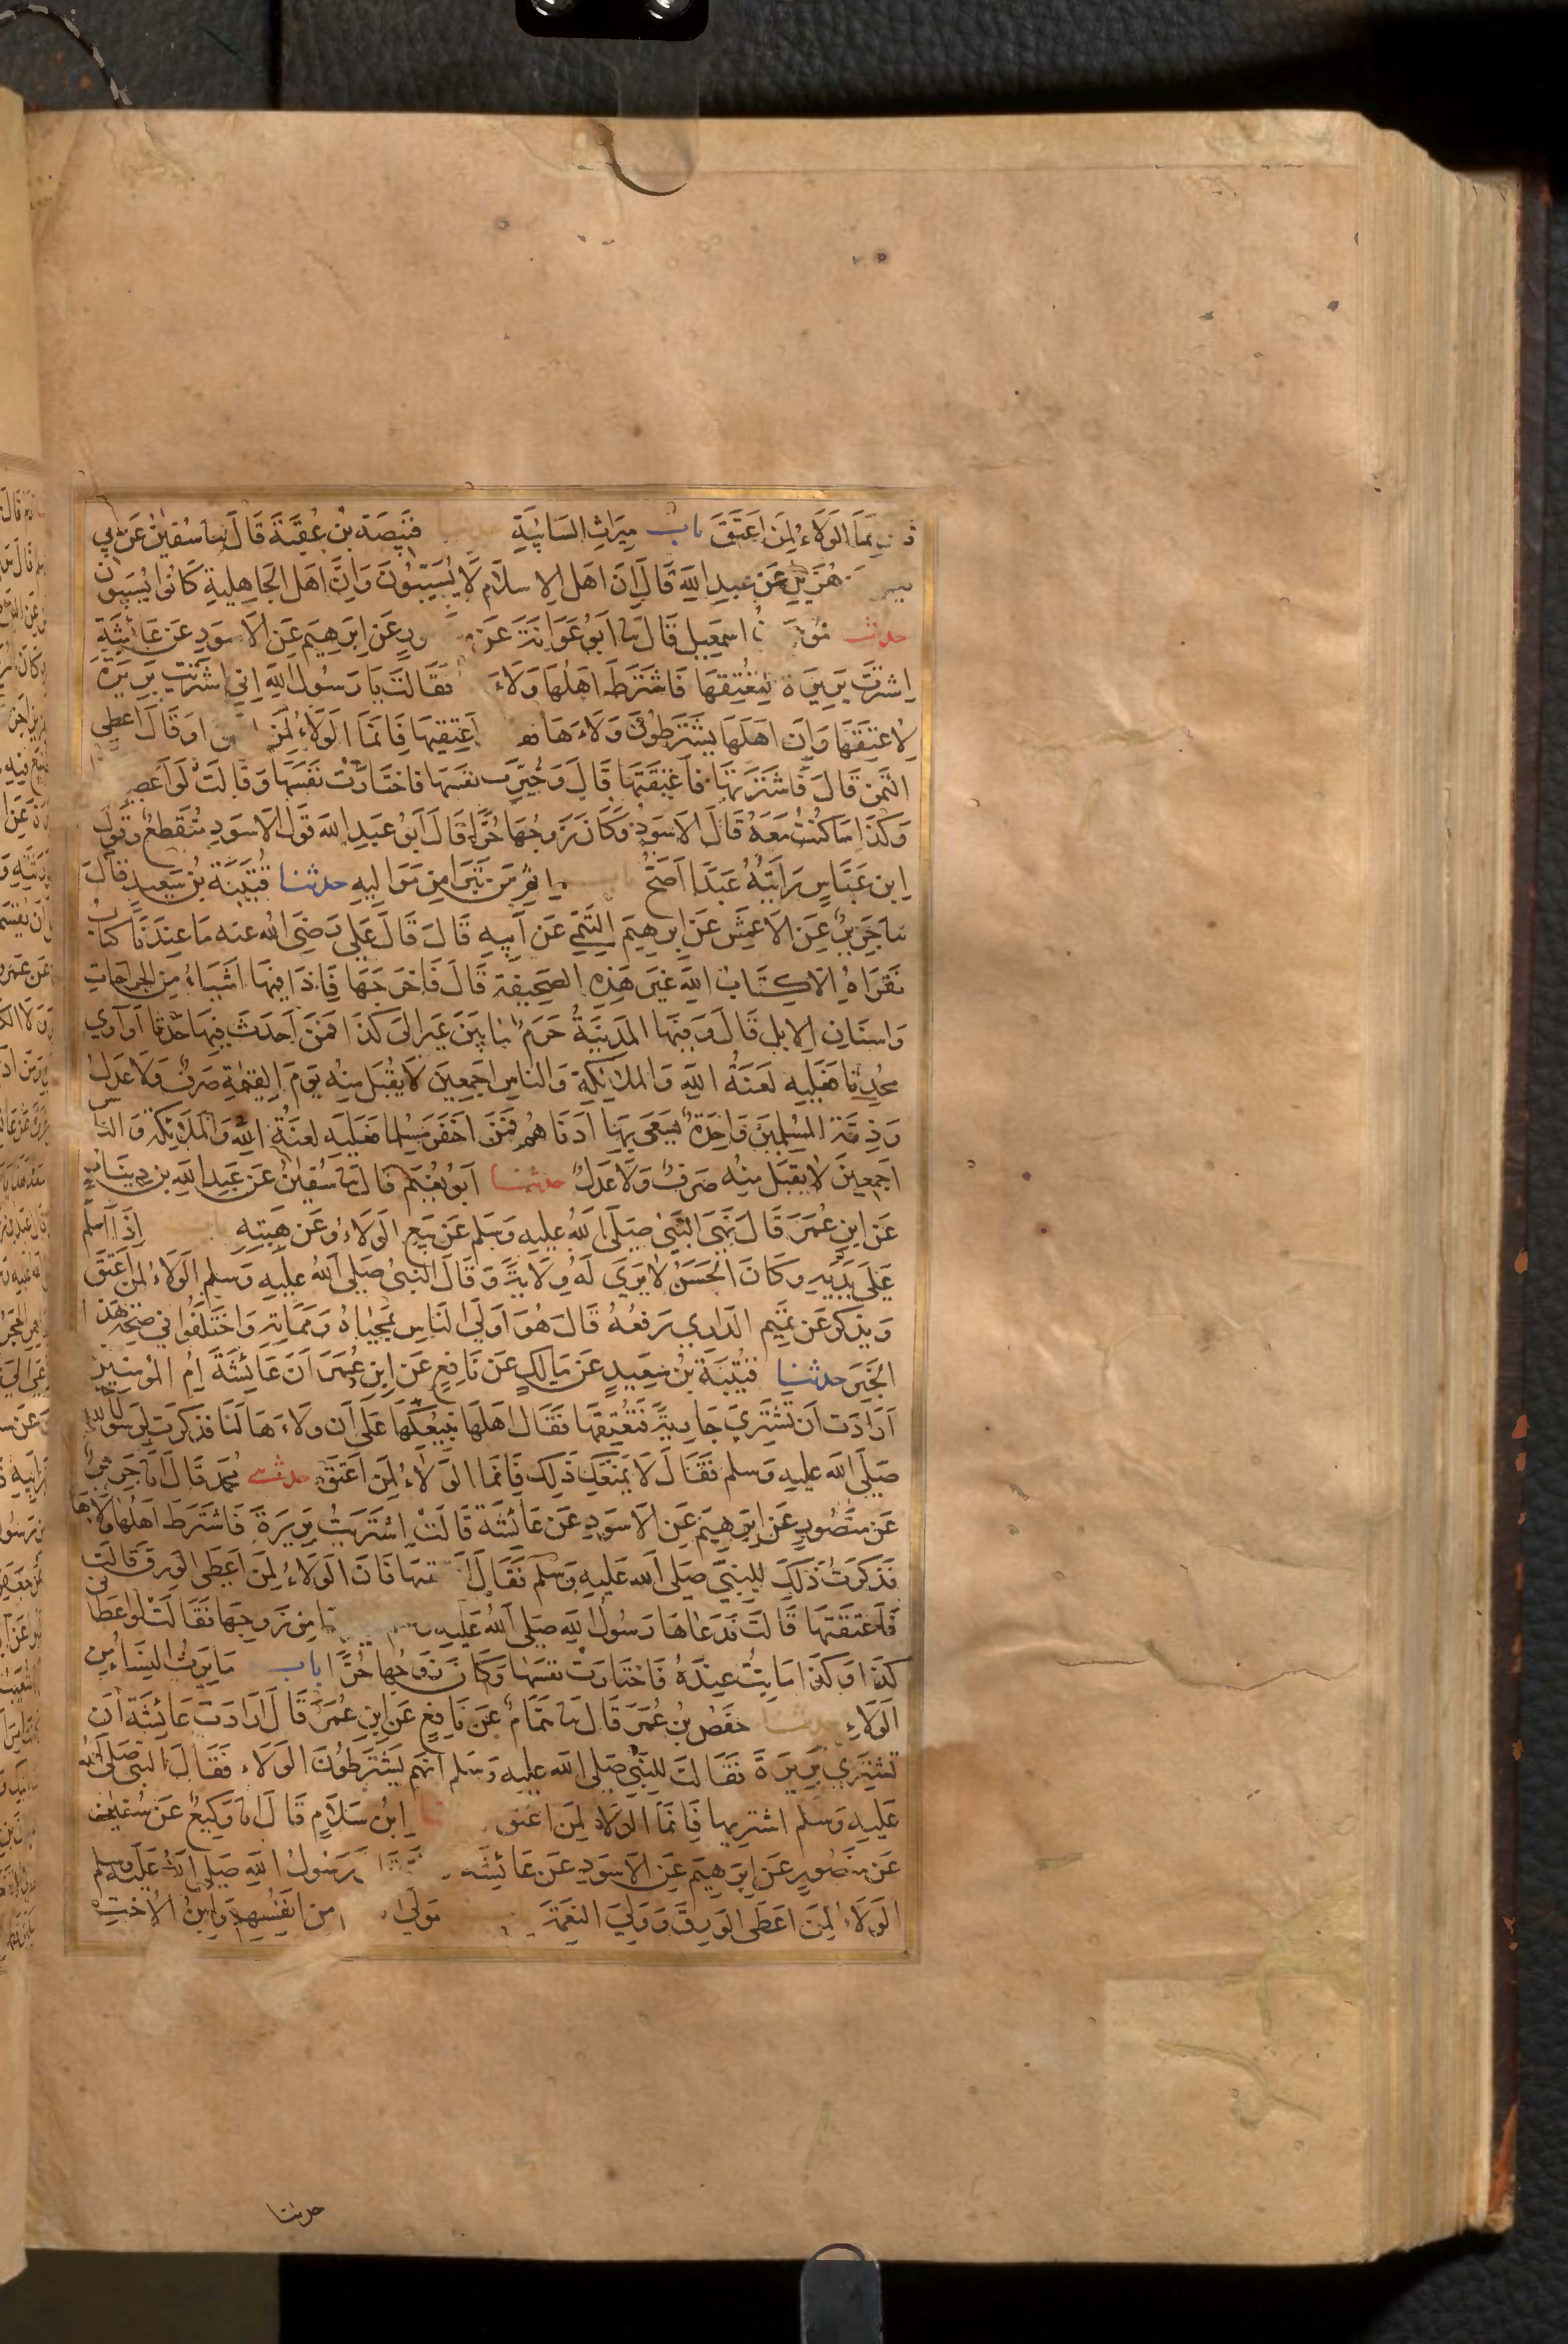 نما الولاء لمن اعتق باب ميراث السائبة قبيصة بن عقبة قال نا سفين عن ابي
هزيل عن عبد الله قال ان اهل الاسلام لا يسيبون وان اهل الجاهلية كانوا يسيبون
حدثنا اسمعيل قال نا ابو عوانة عن عن ابرهيم عن الاسود عن عائشة
اشترت بريرة لتعتقها فاشترط اهلها ولاء فقالت يا رسول الله اني اشتريت بريرة
لاعتقها وان اهلها يشترطون ولاءها اعتقيها فانما الولاء لمن او قال اعطي
الثمن قال فاشترتها فاعتقتها قال وخيرت نفسها فاختارت نفسها وقالت لو اعطي
وكذا ما كنت معه قال الاسود وكان زوجها حرا قال ابو عبد الله قول الاسود منقطع وقول
ابن عباس رايته عبدا اصح اثم من تبرا من مواليه حدثنا قتيبة بن سعيد قال
نا جرير عن الاعمش عن ابرهيم التيمي عن ابيه قال قال علي رضي الله عنه ما عندنا كتاب
نقراه الا كتاب الله غير هذه الصحيفة قال فاخرجها فاذا فيها اشياء من الجراحات
واسنان الابل قال وفيها المدينة حرم ما بين عير الى كذا فمن احدث فيها حدثا او اوي
محدثا فعليه لعنة الله والملائكة والناس اجمعين لا يقبل منه يوم القيمة صرف ولا عدل
وذمة المسلمين واحدة يسعى بها ادناهم فمن اخفر مسلما فعليه لعنة الله والملائكة والناس
اجمعين لا يقبل منه صرف ولا عدل حدثنا ابو نعيم قال نا سفين عن عبد الله بن دينار
عن ابن عمر قال نهى النبي صلى الله عليه وسلم عن بيع الولاء وعن هبته اذا اسلم
على يديه وكان الحسن لا يرى له ولاية وقال النبي صلى الله عليه وسلم الولاء لمن اعتق
ويذكر عن تميم الداري رفعه قال هو اولى الناس بمحياه ومماته واختلفوا في صحة هذا
الخبر حدثنا قتيبة بن سعيد عن مالك عن نافع عن ابن عمر ان عائشة ام المومنين
ارادت ان تشتري جارية فتعتقها فقال اهلها نبيعكها على ان ولاءها لنا فذكرت لرسول الله
صلى الله عليه وسلم فقال لا يمنعك ذلك فانما الولاء لمن اعتق حدثنا محمد قال انا جرير
عن منصور عن ابرهيم عن الاسود عن عائشة قالت اشتريت بريرة فاشترط اهلها ولاءها
فذكرت ذلك للنبي صلى الله عليه وسلم فقال اعتقيها فان الولاء لمن اعطى الورق قالت
فاعتقتها قالت فدعاها رسول الله صلى الله عليه من زوجها فقالت لو اعطاني
كذا وكذا ما بت عنده فاختارت نفسها وكان زوجها حرا باب ما يرث النساء من
الولاء حدثنا حفص بن عمر قال نا همام عن نافع عن ابن عمر قال ارادت عائشة ان
تشتري بريرة فقالت للنبي صلى الله عليه وسلم انهم يشترطون الولاء فقال النبي صلى الله
عليه وسلم اشتريها فانما الولاء لمن اعتق ابن سلام قال انا وكيع عن سفين
عن منصور عن ابرهيم عن الاسود عن عائشه رسول الله صلى الله عليه وسلم
الولاء لمن اعطى الورق وولي النعمة مولى من انفسهم وابن الاخت
حدثنا